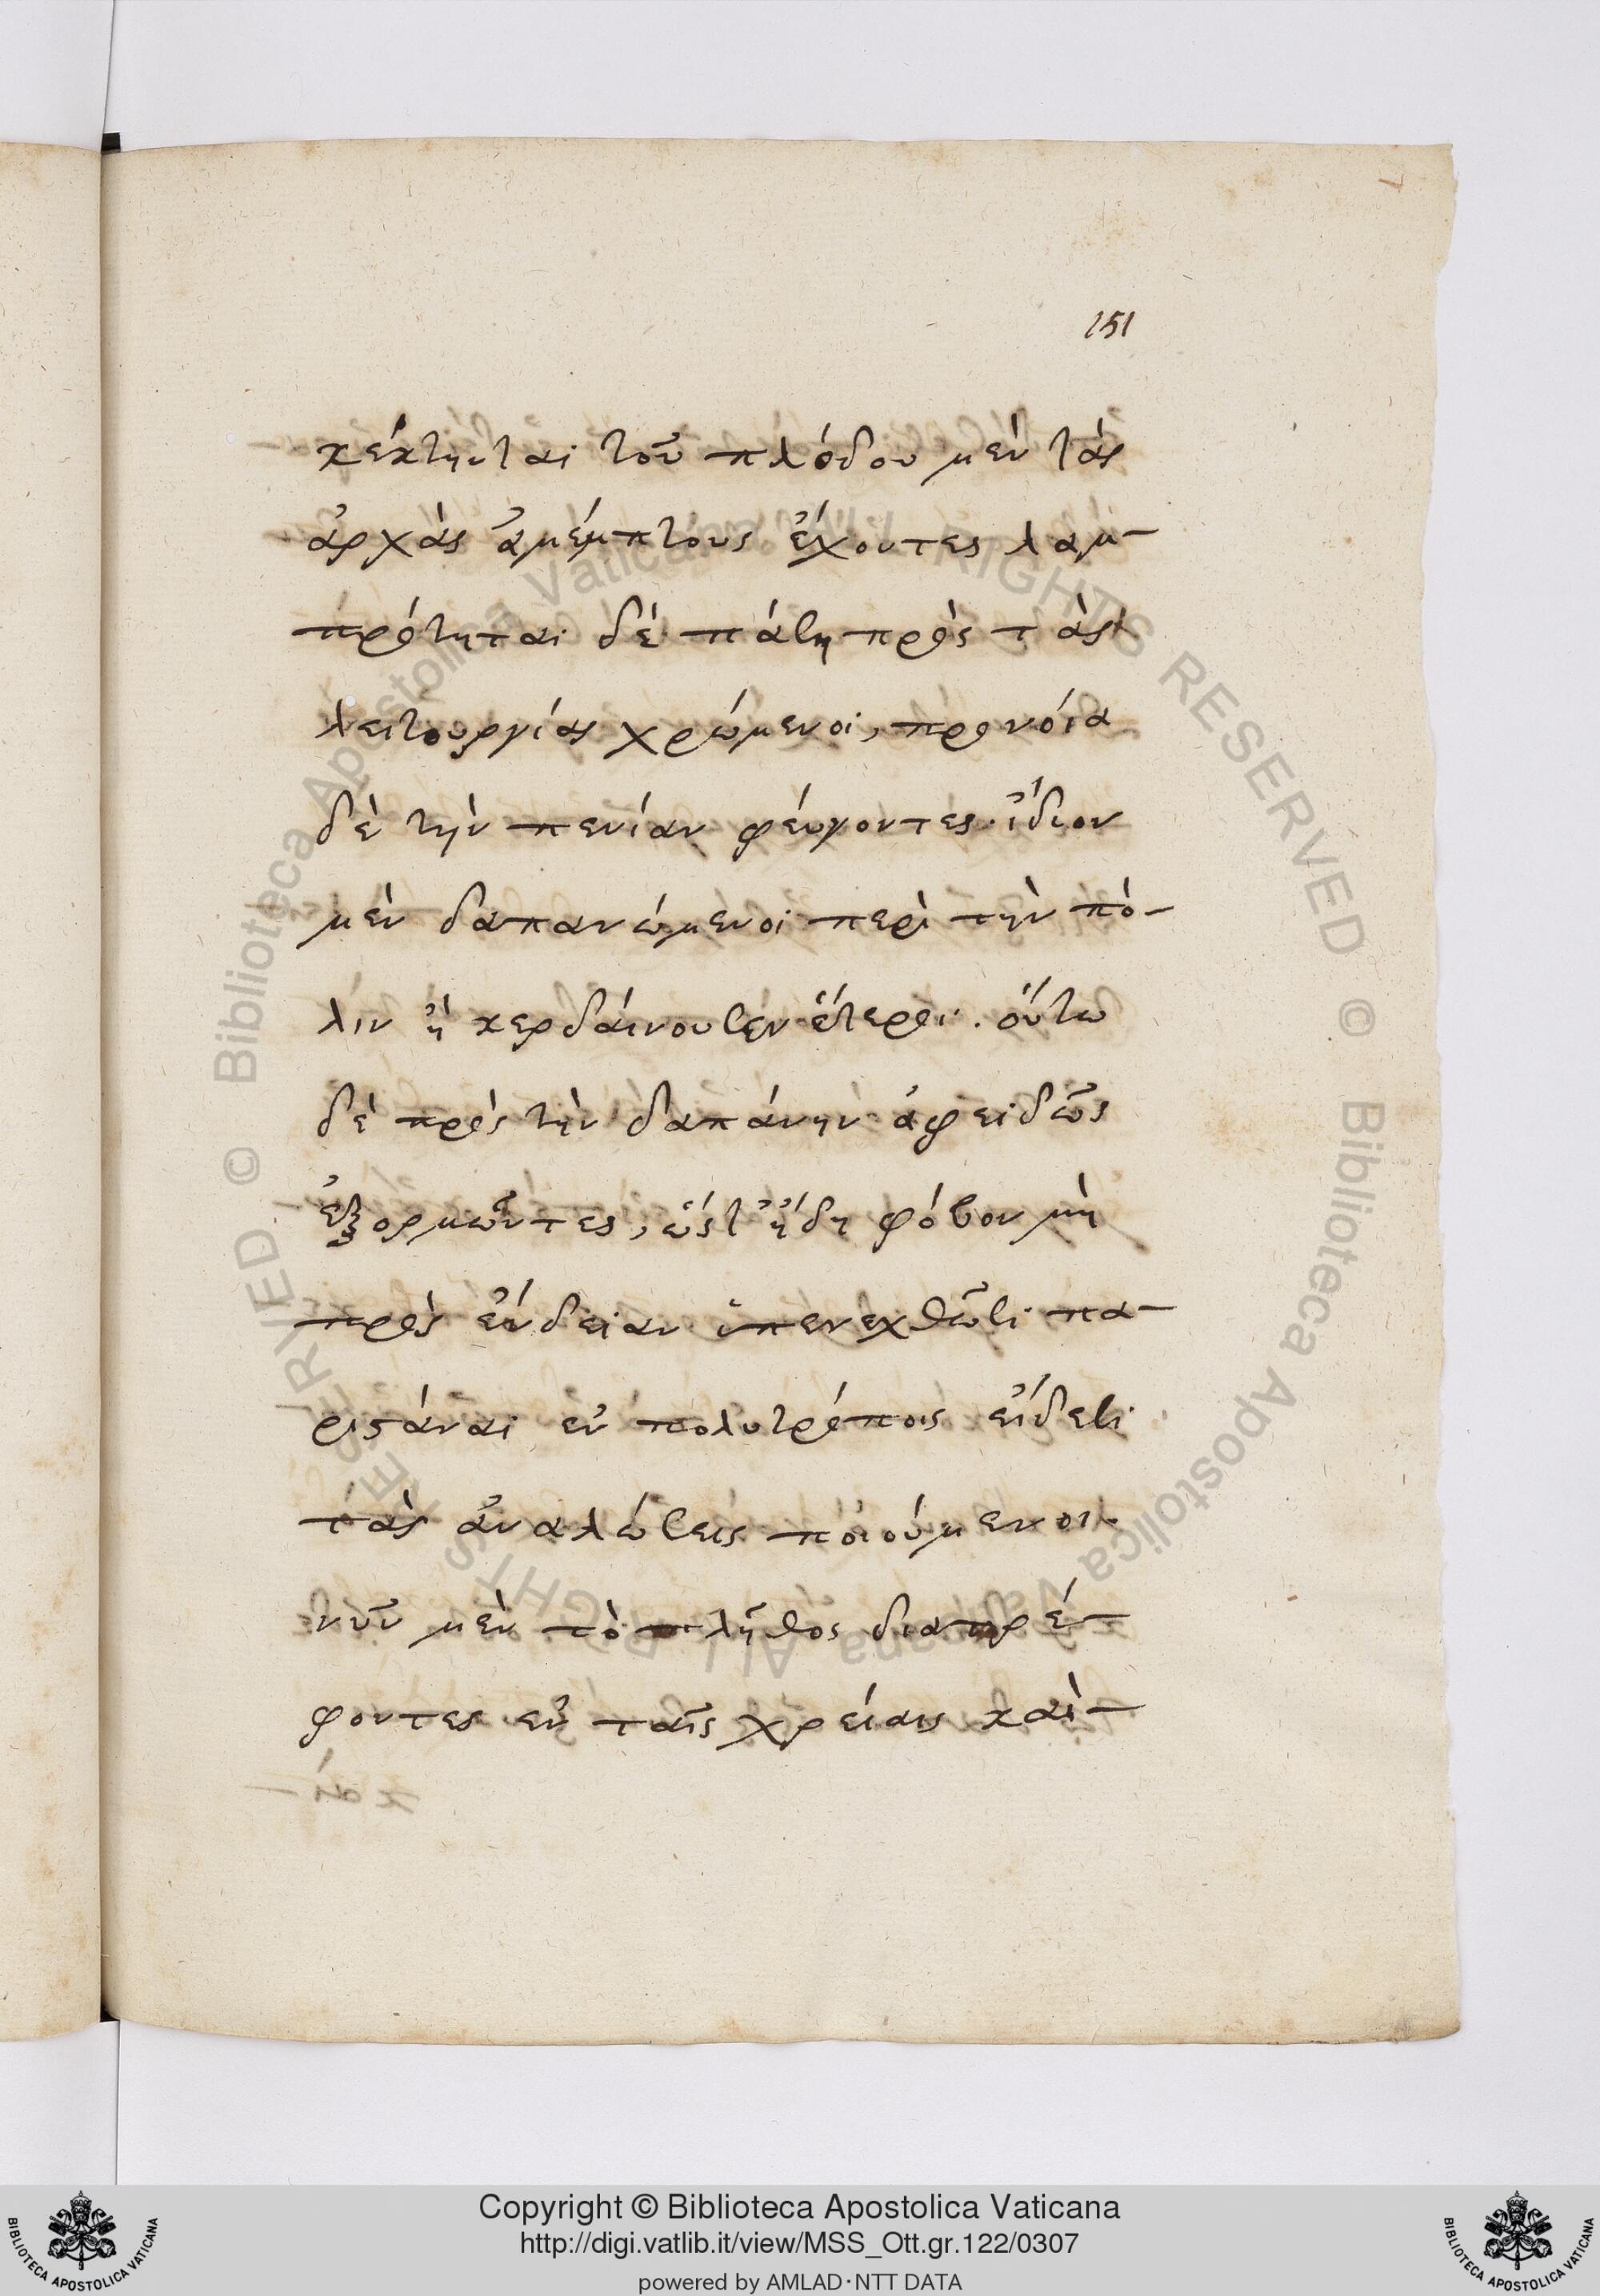 151
κέκτηνται τοῦ πλόυδου μὲν τὰς
ἀρχὰς ἀμέμπτους ἔχοντες λαμ-
πρότηται δὲ πάση πρὸς τὰς
λειτουργίας χρώμενοι, προνόια
δὲ τὴν πενίαν φέυγοντες. ἴδιον
μὲν δαπανώμενοι περὶ τὴν πό-
λιν ἢ κερδάινουσιν ἕτεροι. ὅυτω
δὲ πρὸς τὴν δαπάνην ἀφειδῶς
ἐξορμῶντες, ὥστ' ἤδη φόβον μὴ
πρὸς ἔνδειαν ὑπενεχθῶσι πα-
ριστάναι ἐν πολυτρόποις εἴδεσι
τὰς ἀναλώσεις ποιούμενοι.
νῦν μὲν τὸ πλῆθος διατρέ-
φοντες ἐν ταῖς χρείαις καὶ-
Copyright © Biblioteca Apostolica Vaticana
http://digi.vatlib.it/view/MSS_Ott.gr.122/0307
powered by AMLAD·NTT DATA
BIBLIOTECA APOSTOLICA VATICANA
BIBLIOTECA APOSTOLICA VATICANA
© Biblioteca Apostolica Vaticana ALL RIGHTS RESERVED
© Biblioteca Apostolica Vaticana ALL RIGHTS RESERVED